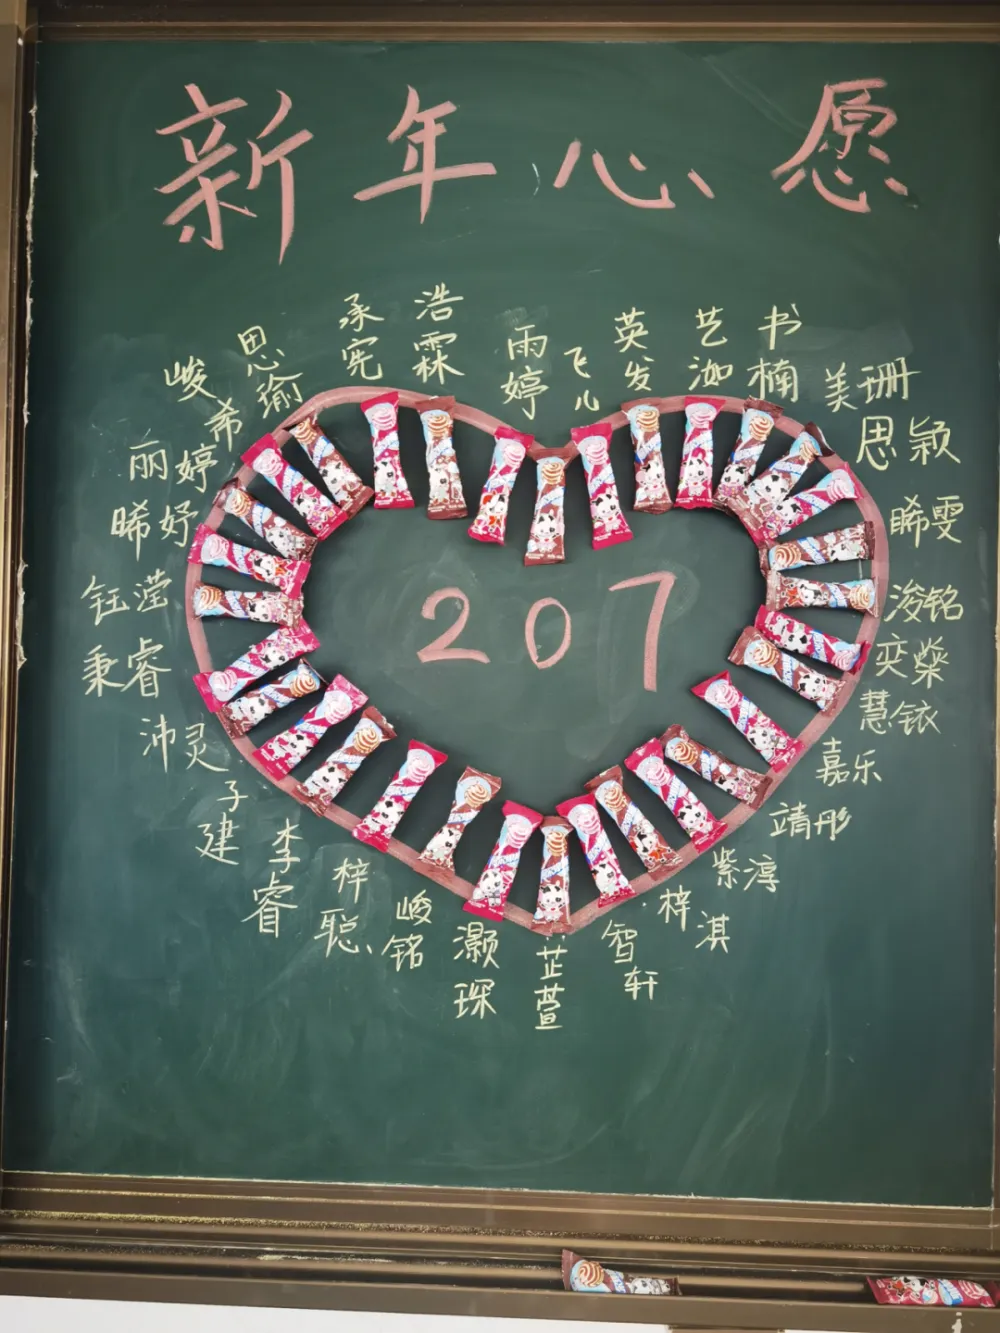 新年心愿
承宪
浩霖
雨婷
飞儿
英发
艺洳
书楠
美珊
思颖
晞雯
浚铭
奕燊
慧铱
嘉乐
靖彤
紫淳
梓淇
智轩
芷萱
灏琛
峻铭
梓聪
李睿
子建
沛灵
秉睿
钰滢
晞妤
丽婷
峻希
思瑜
207